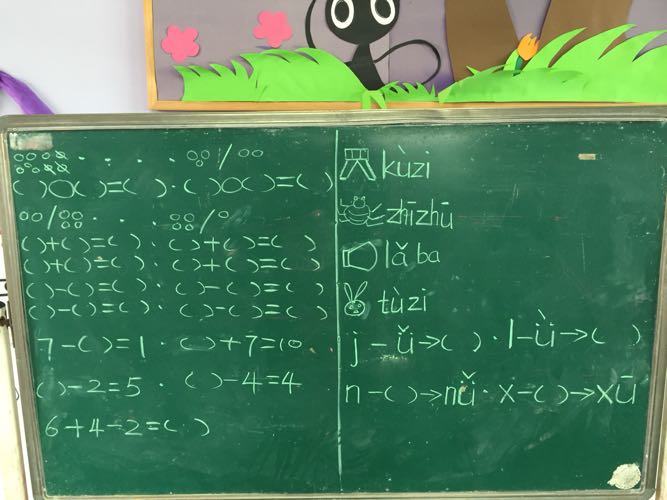 ( )○( )=( ) · ( )○( )=( )
( )+( )=( ) · ( )+( )=( )
( )+( )=( ) · ( )+( )=( )
( )-( )=( ) · ( )-( )=( )
( )-( )=( ) · ( )-( )=( )
7-( )=1 · ( )+7=10
( )-2=5 · ( )-4=4
6+4-2=( )
kùzi
zhīzhū
lǎba
tùzi
j-ǚ→( ) · l-ǜ→( )
n-( )→nǚ · x-( )→xū